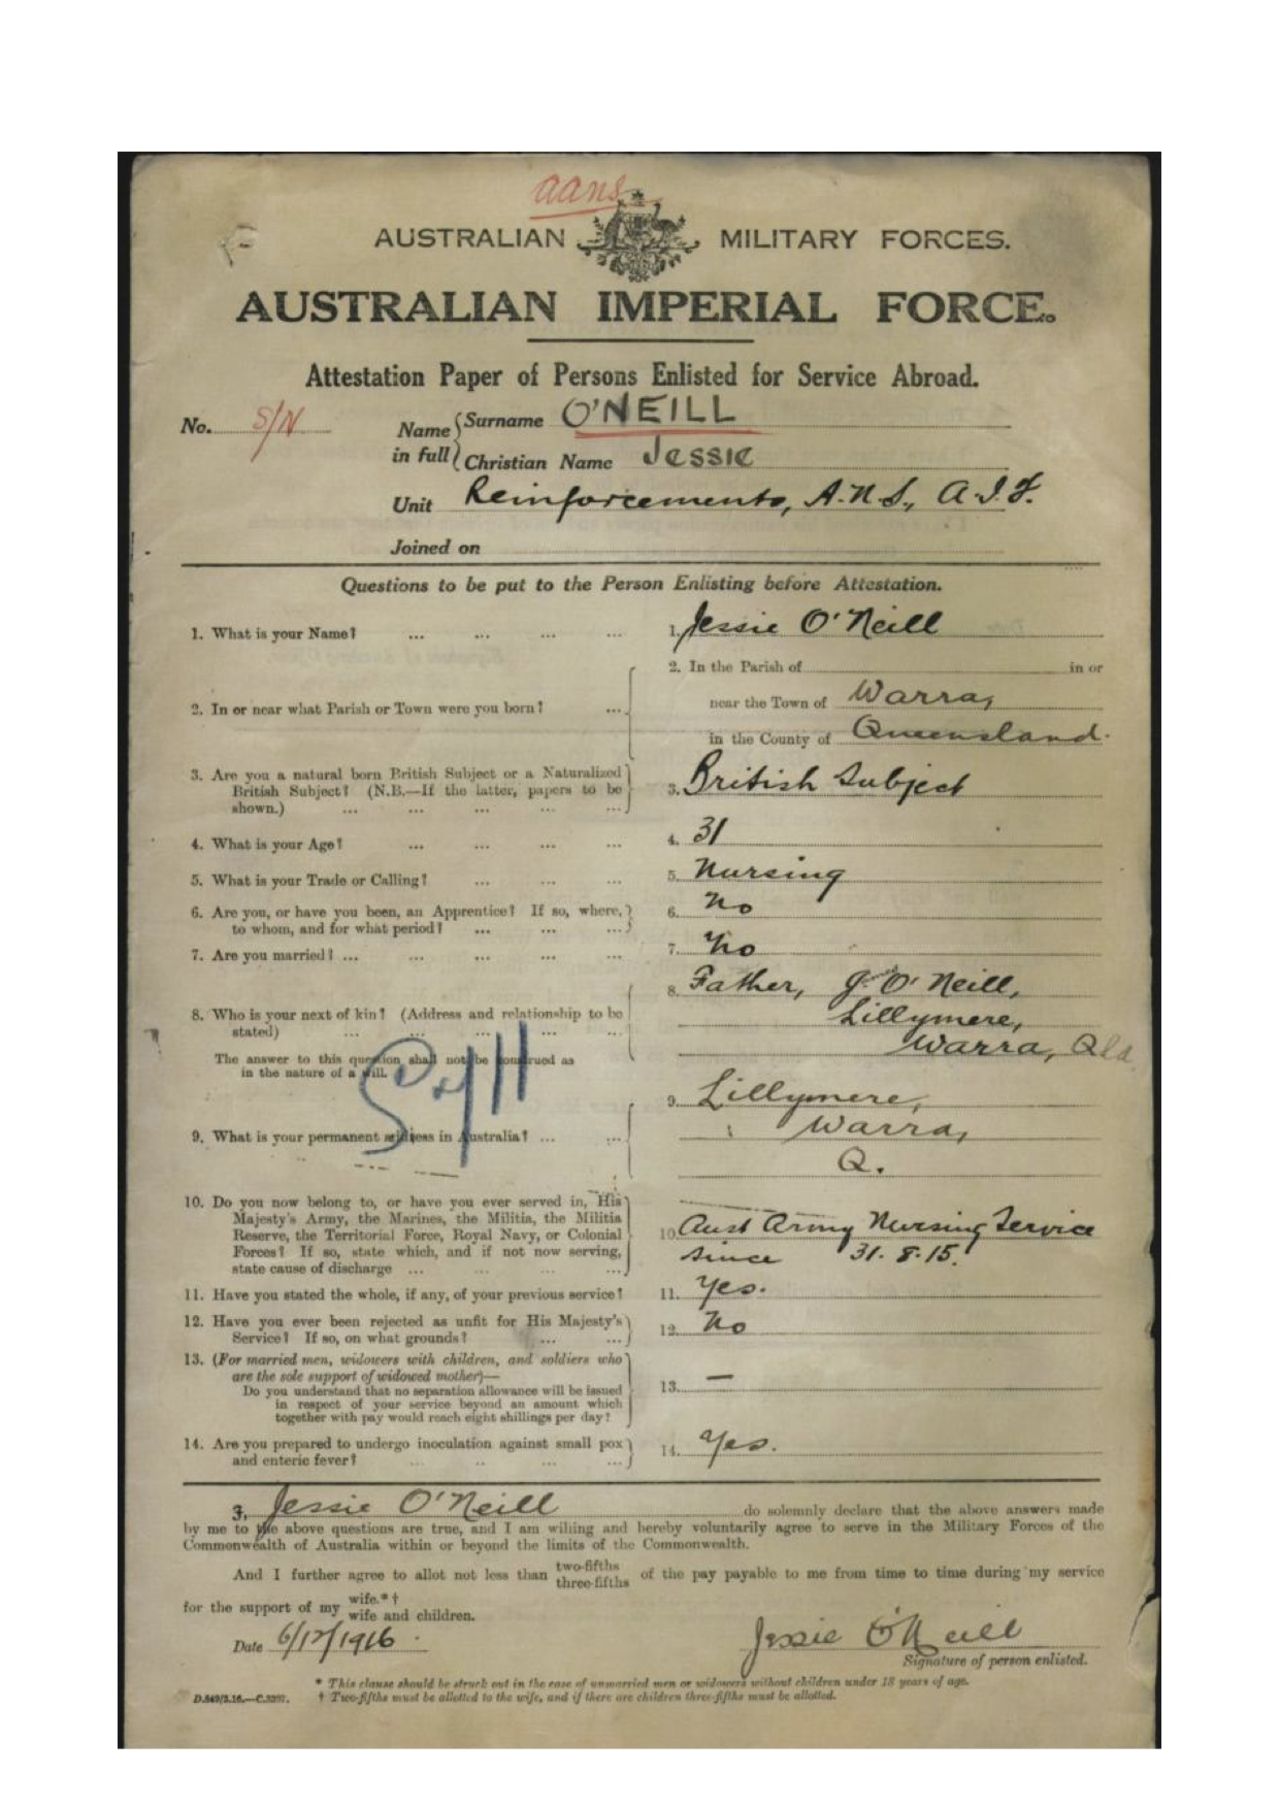 aans
AUSTRALIAN MILITARY FORCES.
AUSTRALIAN IMPERIAL FORCE.
Attestation Paper of Persons Enlisted for Service Abroad.
No. S/N
Name in full { Surname O'NEILL
Christian Name Jessie
Unit Reinforcements, A.N.S., A.I.F.
Joined on
Questions to be put to the Person Enlisting before Attestation.
1. What is your Name? ... ... ... ... 1. Jessie O'Neill
2. In or near what Parish or Town were you born? ... 2. In the Parish of in or
near the Town of Warra,
in the County of Queensland.
3. Are you a natural born British Subject or a Naturalized
British Subject? (N.B.—If the latter, papers to be
shown.) ... ... ... ... ... 3. British Subject
4. What is your Age? ... ... ... ... 4. 31
5. What is your Trade or Calling? ... ... ... 5. Nursing
6. Are you, or have you been, an Apprentice? If so, where,
to whom, and for what period? ... ... ... 6. No
7. Are you married? ... ... ... ... ... 7. No
8. Who is your next of kin? (Address and relationship to be
stated) ... ... ... ... ...
The answer to this question shall not be construed as
in the nature of a will.
8. Father, J. O'Neill,
Lillymere,
Warra, Qld
9. What is your permanent address in Australia? ... ...
9. Lillymere,
Warra,
Q.
10. Do you now belong to, or have you ever served in, His
Majesty's Army, the Marines, the Militia, the Militia
Reserve, the Territorial Force, Royal Navy, or Colonial
Forces? If so, state which, and if not now serving,
state cause of discharge ... ... ... ...
10. Aust Army Nursing Service
since 31.8.15.
11. Have you stated the whole, if any, of your previous service? 11. Yes.
12. Have you ever been rejected as unfit for His Majesty's
Service? If so, on what grounds? ... ... 12. No
13. (For married men, widowers with children, and soldiers who
are the sole support of widowed mother)—
Do you understand that no separation allowance will be issued
in respect of your service beyond an amount which
together with pay would reach eight shillings per day?
13. —
14. Are you prepared to undergo inoculation against small pox
and enteric fever? ... ... ... ... 14. Yes.
I, Jessie O'Neill do solemnly declare that the above answers made
by me to the above questions are true, and I am willing and hereby voluntarily agree to serve in the Military Forces of the
Commonwealth of Australia within or beyond the limits of the Commonwealth.
And I further agree to allot not less than two-fifths three-fifths of the pay payable to me from time to time during my service
for the support of my wife.*† wife and children.
Date 6/12/1916
Jessie O'Neill
Signature of person enlisted.
* This clause should be struck out in the case of unmarried men or widowers without children under 18 years of age.
† Two-fifths must be allotted to the wife, and if there are children three-fifths must be allotted.